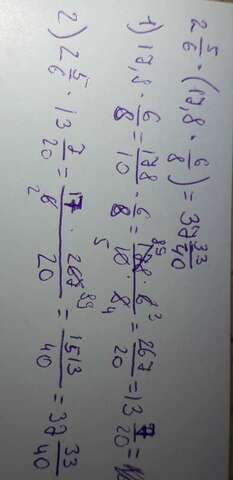 2 5/6 · (17,8 · 6/8) = 37 33/40
1) 17,8 · 6/8 = 178/10 · 6/8 = 178 89 · 6 3 / 10 5 · 8 4 = 267/20 = 13 7/20 =
2) 2 5/6 · 13 7/20 = 17 · 267 89 / 6 2 · 20 = 1513/40 = 37 33/40